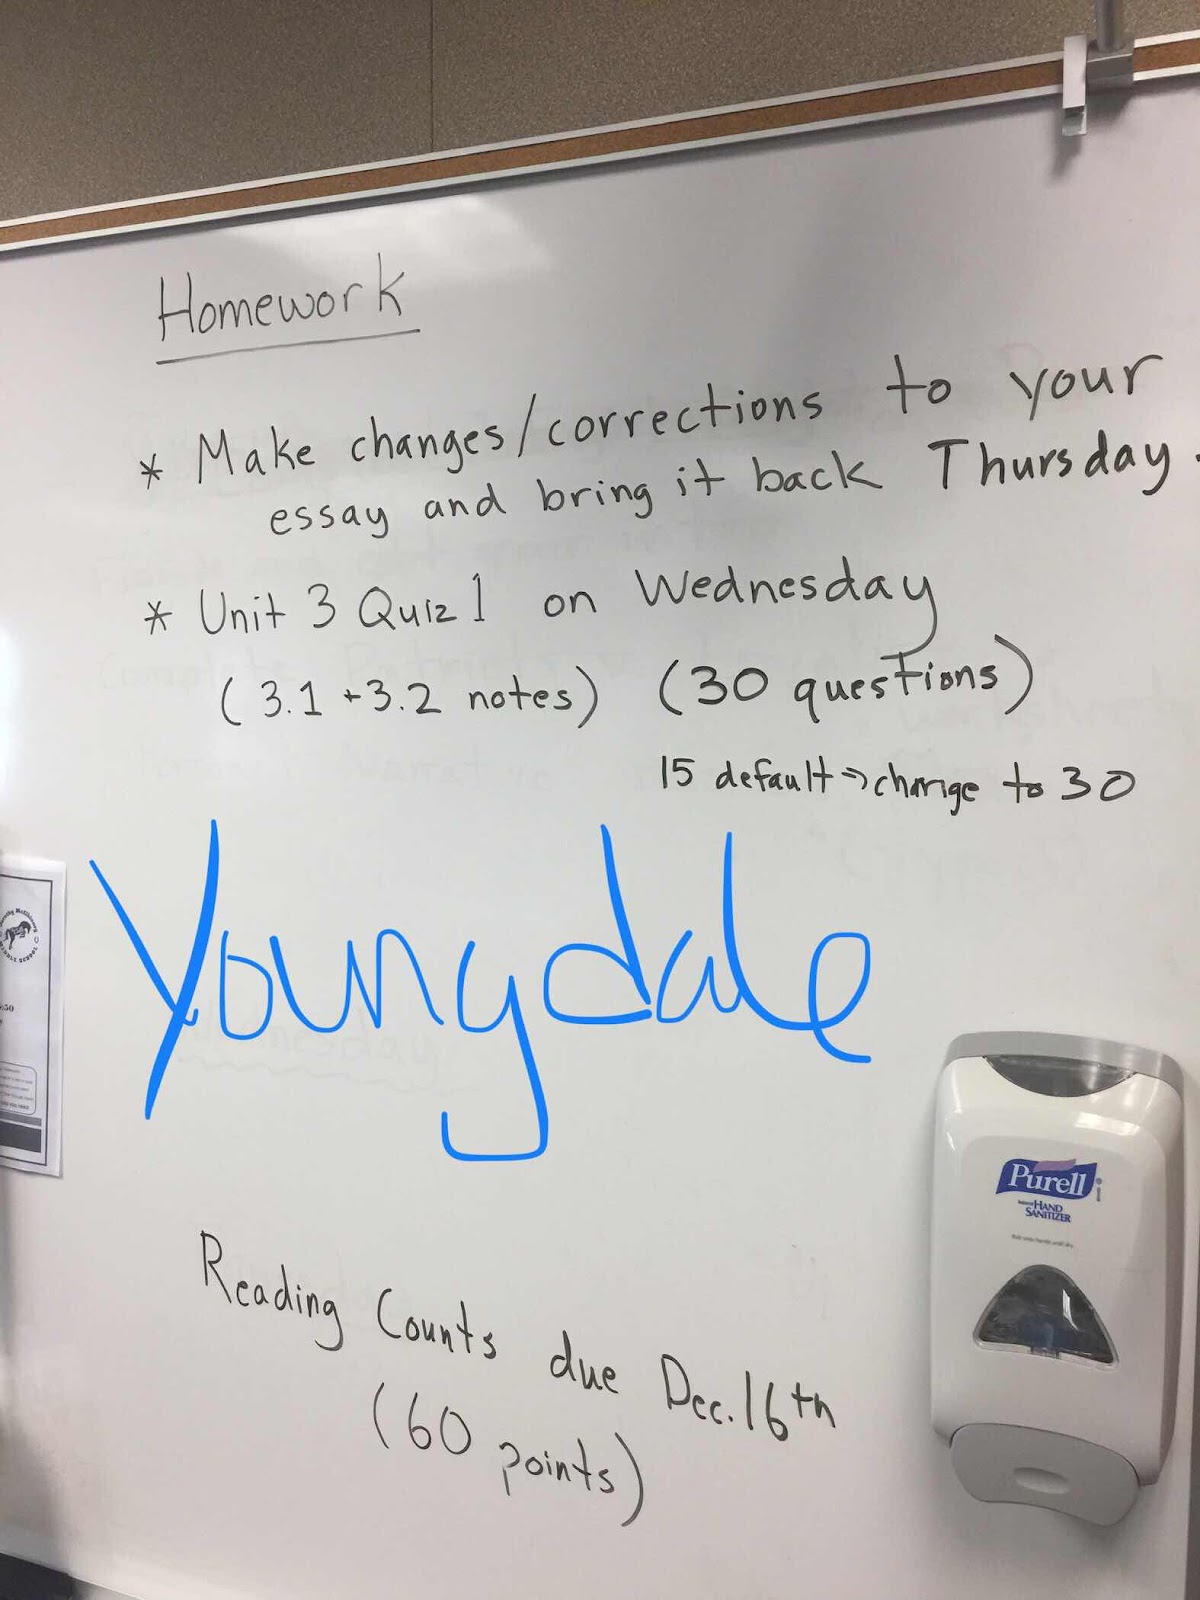 Homework
* Make changes/corrections to your
essay and bring it back Thursday.
* Unit 3 Quiz 1 on Wednesday
(3.1 + 3.2 notes) (30 questions)
15 default ⇒ change to 30
Youngdale
Purell
HAND
SANITIZER
Reading Counts due Dec. 16th
(60 points)